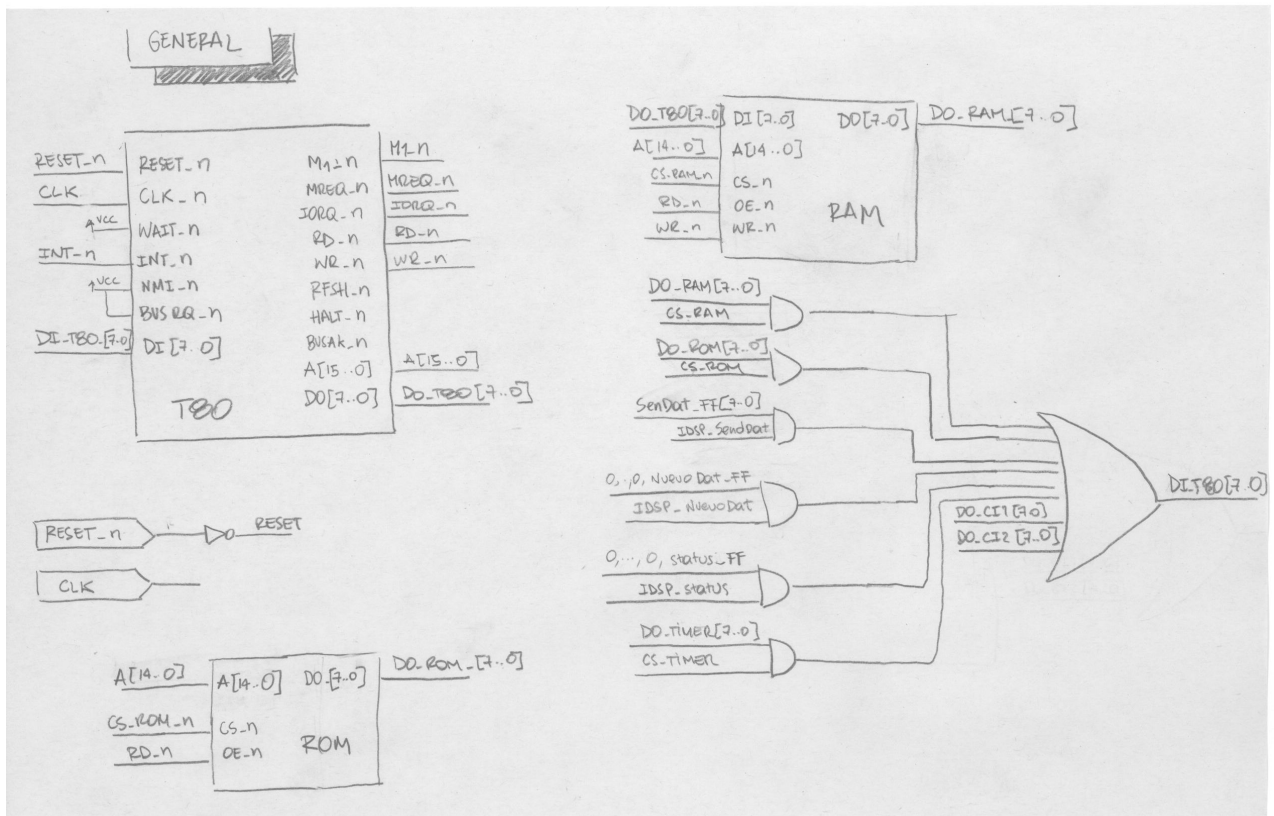 GENERAL
RESET_n
CLK
VCC
INT_n
VCC
DI_T80_[7..0]
RESET_n
CLK_n
WAIT_n
INT_n
NMI_n
BUSRQ_n
DI[7..0]
T80
M1_n
MREQ_n
IORQ_n
RD_n
WR_n
RFSH_n
HALT_n
BUSAK_n
A[15..0]
DO[7..0]
M1_n
MREQ_n
IORQ_n
RD_n
WR_n
A[15..0]
DO_T80[7..0]
RESET_n
RESET
CLK
A[14..0]
CS_ROM_n
RD_n
A[14..0]
CS_n
OE_n
DO_[7..0]
ROM
DO_ROM_[7..0]
DO_T80[7..0]
A[14..0]
CS_RAM_n
RD_n
WR_n
DI[7..0]
A[14..0]
CS_n
OE_n
WR_n
DO[7..0]
RAM
DO_RAM_[7..0]
DO_RAM[7..0]
CS_RAM
DO_ROM[7..0]
CS_ROM
SenDat_FF[7..0]
IDSP_SendDat
0,..,0, NuevoDat_FF
IDSP_NuevoDat
0,...,0, status_FF
IDSP_status
DO_TIMER[7..0]
CS_TIMER
DO_CI1[7..0]
DO_CI2[7..0]
DI_T80[7..0]